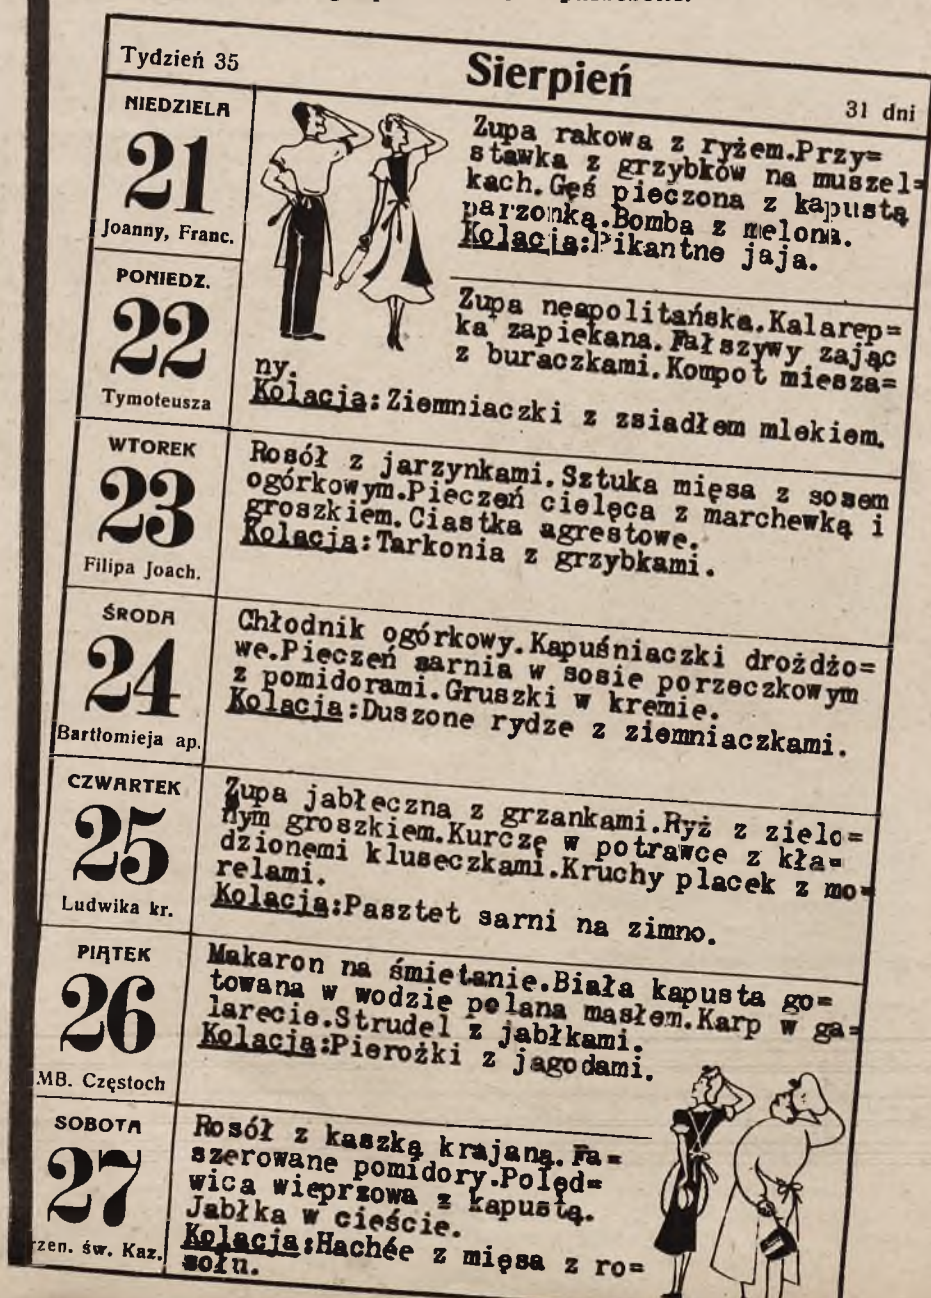 Tydzień 35
Sierpień
31 dni
NIEDZIELA
21
Joanny, Franc.
Zupa rakowa z ryżem.Przy=
stawka z grzybków na muszel=
kach.Gęś pieczona z kapustą
parzonką.Bomba z melona.
Kolacja:Pikantne jaja.
PONIEDZ.
22
Tymoteusza
Zupa neapolitańska.Kalarep=
ka zapiekana.Fałszywy zając
z buraczkami.Kompot miesza=
ny.
Kolacja:Ziemniaczki z zsiadłem mlekiem.
WTOREK
23
Filipa Joach.
Rosół z jarzynkami.Sztuka mięsa z sosem
ogórkowym.Pieczeń cielęca z marchewką i
groszkiem.Ciastka agrestowe.
Kolacja:Tarkonia z grzybkami.
ŚRODA
24
Bartłomieja ap.
Chłodnik ogórkowy.Kapuśniaczki drożdżo=
we.Pieczeń sarnia w sosie porzeczkowym
z pomidorami.Gruszki w kremie.
Kolacja:Duszone rydze z ziemniaczkami.
CZWARTEK
25
Ludwika kr.
Zupa jabłeczna z grzankami.Ryż z zielo=
nym groszkiem.Kurczę w potrawce z kła=
dzionemi kluseczkami.Kruchy placek z mo=
relami.
Kolacja:Pasztet sarni na zimno.
PIĄTEK
26
MB. Częstoch
Makaron na śmietanie.Biała kapusta go=
towana w wodzie polana masłem.Karp w ga=
larecie.Strudel z jabłkami.
Kolacja:Pierożki z jagodami.
SOBOTA
27
rzen. św. Kaz.
Rosół z kaszką krajaną.Fa=
szerowane pomidory.Polęd=
wica wieprzowa z kapustą.
Jabłka w cieście.
Kolacja:Hachée z mięsa z ro=
sołu.